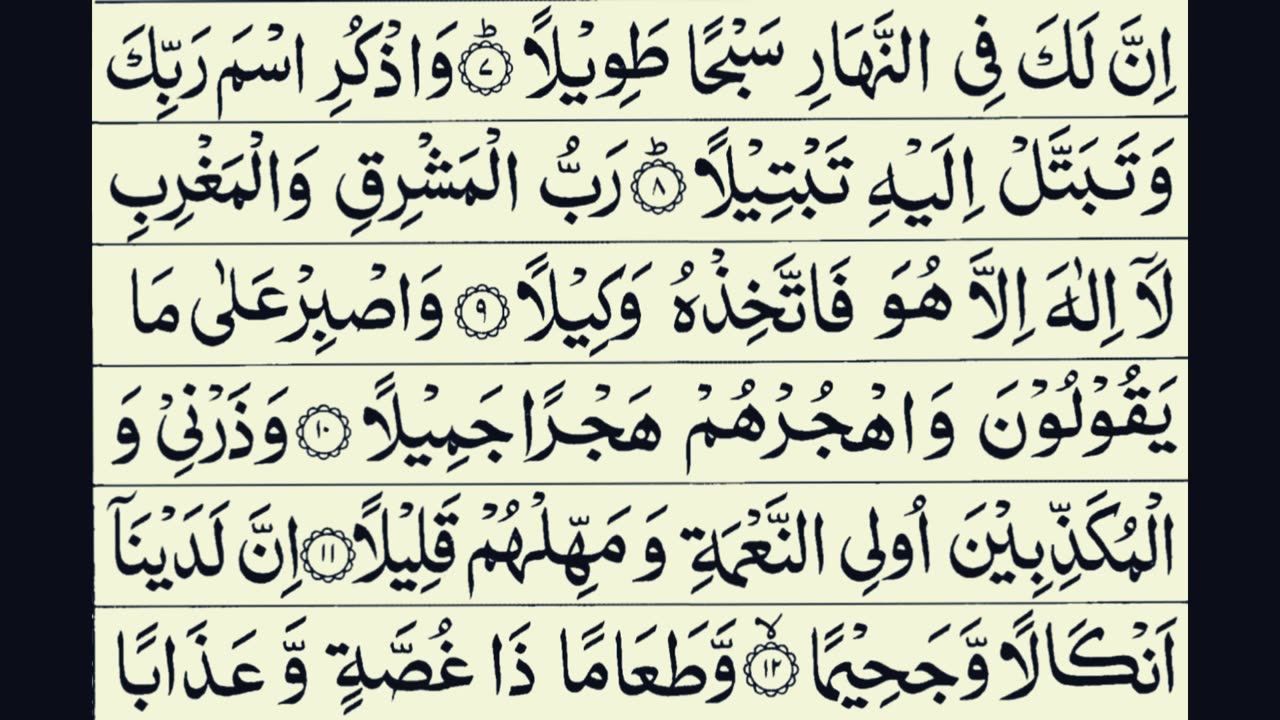 اِنَّ لَكَ فِى النَّهَارِ سَبْحًا طَوِيلًا ؕ‏ ﴿۷﴾ وَاذْكُرِ اسْمَ رَبِّكَ
وَتَبَتَّلْ اِلَيْهِ تَبْتِيْلًا ؕ‏ ﴿۸﴾ رَبُّ الْمَشْرِقِ وَالْمَغْرِبِ
لَاۤ اِلٰهَ اِلَّا هُوَ فَاتَّخِذْهُ وَكِيْلًا ﴿۹﴾ وَاصْبِرْ عَلٰى مَا
يَقُوْلُوْنَ وَاهْجُرْهُمْ هَجْرًا جَمِيْلًا ﴿۱۰﴾ وَذَرْنِىْ وَ
الْمُكَذِّبِيْنَ اُولِى النَّعْمَةِ وَمَهِّلْهُمْ قَلِيْلًا ﴿۱۱﴾ اِنَّ لَدَيْنَاۤ
اَنْكَالًا وَّجَحِيْمًا ۙ‏ ﴿۱۲﴾ وَّطَعَامًا ذَا غُصَّةٍ وَّعَذَابًا